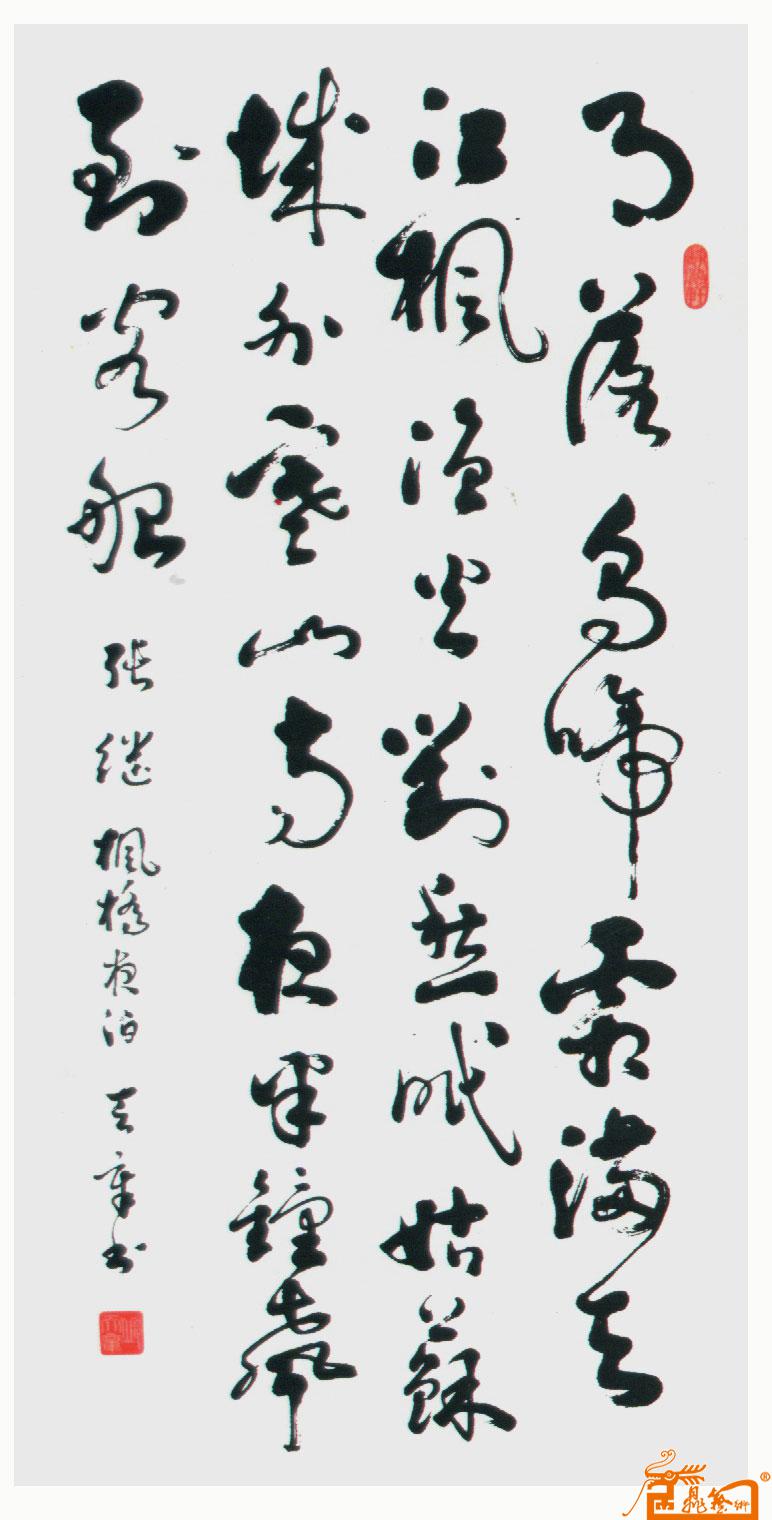 月落烏啼霜滿天
江楓漁火對愁眠姑蘇
城外寒山寺夜半鐘聲
到客船
張繼楓橋夜泊 天章书